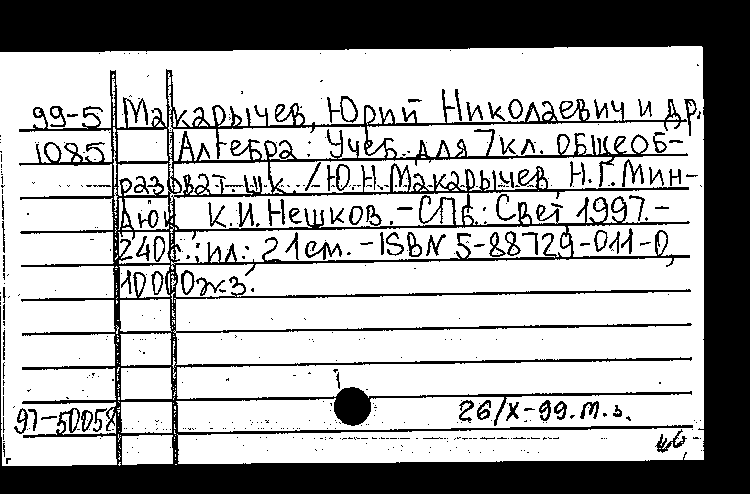 99-5 Макарычев, Юрий Николаевич и др.
1085 Алгебра: Учеб. для 7 кл. общеоб-
разоват. шк. / Ю.Н. Макарычев, Н.Г. Мин-
дюк, К.И. Нешков. - СПб.: Свет, 1997. -
240с.: ил.; 21см. - ISBN 5-88729-011-0,
10000экз.
97-50058 26/X-99.т.з.